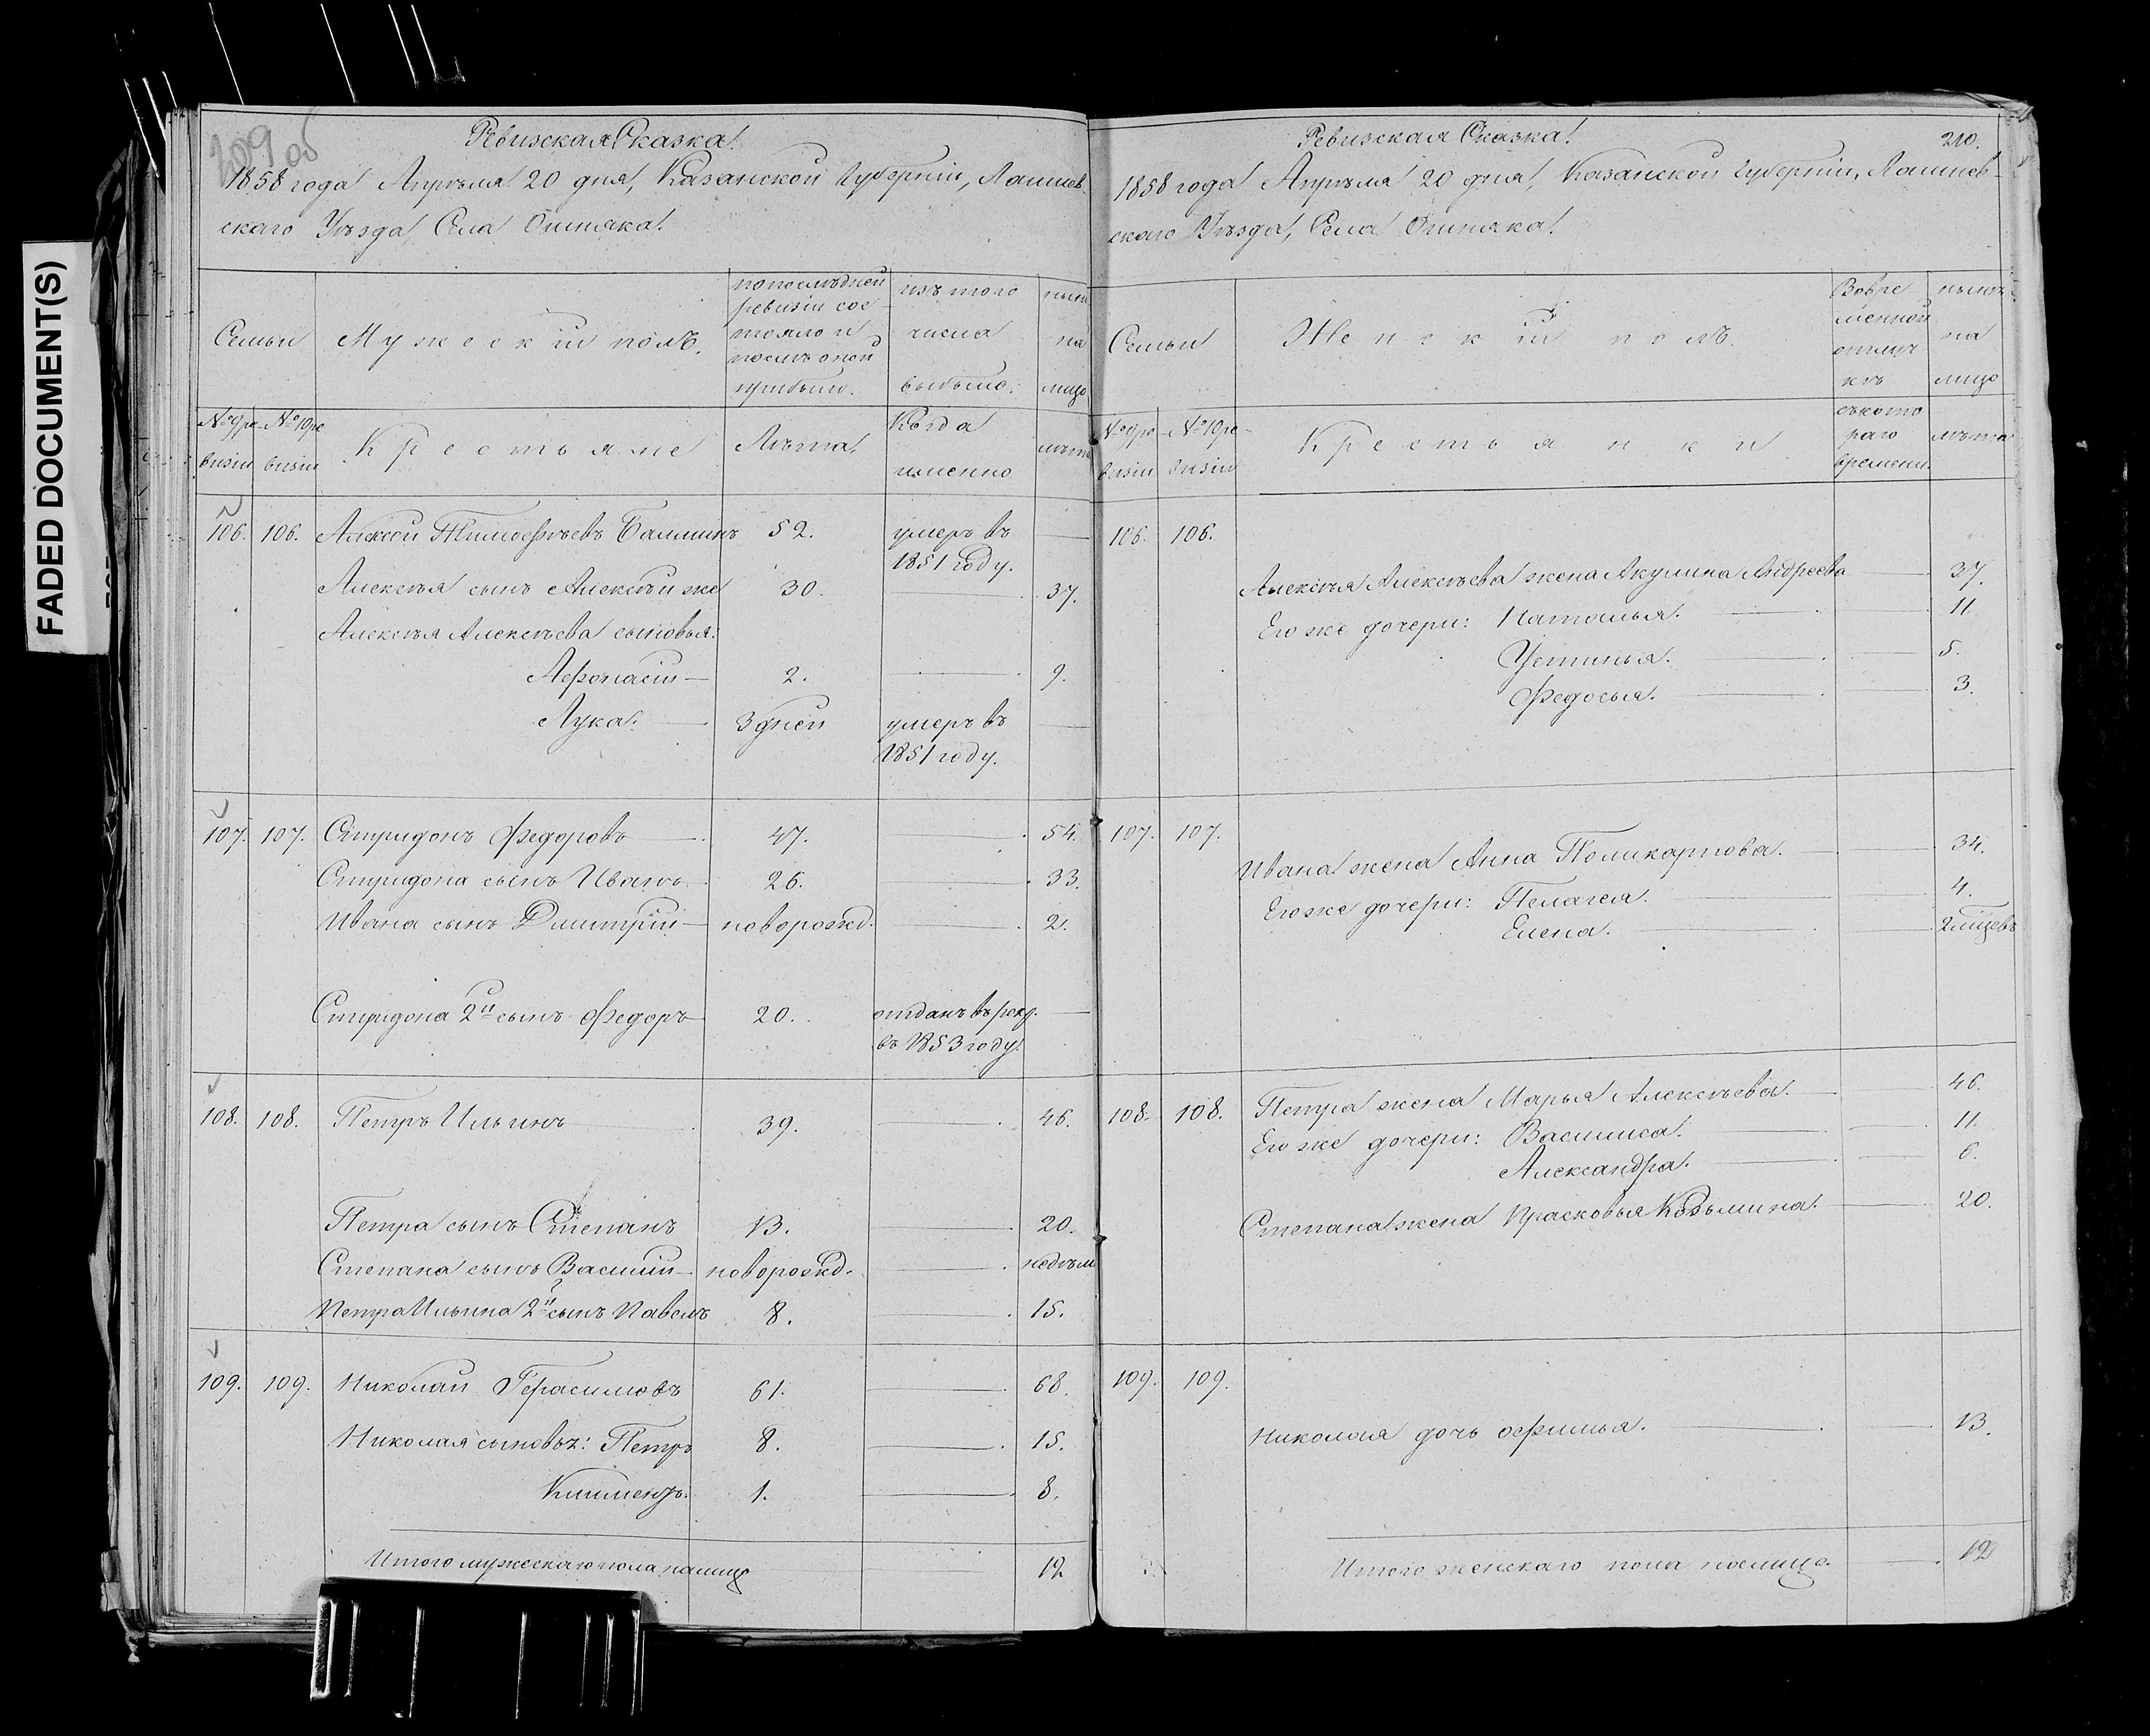 FADED DOCUMENT(S)
209 об
Ревизская Сказка.
1858 года Апрѣля 20 дня, Казанской Губерніи, Лаишев-
скаго Уѣзда, Села Ошняка.
Семьи
Мужескій полъ.
попослѣдней
ревизіи сос-
тояло и
послѣ оной
прибыло.
изъ того
числа
выбыло:
нынѣ
на
лицо
№ 9 ре-
визіи
№ 10 ре
визіи
Крестьяне
Лѣта.
Когда
именно
лѣта
106. 106. Алексѣй Тимофѣевъ Балминъ 52. умеръ въ
1851 году.
Алексѣя сынъ Алексѣй же 30. 37.
Алексѣя Алексѣева сыновья:
Афонасій 2. 9.
Лука. 3 дней умеръ въ
1851 году.
107. 107. Спиридонъ Федоровъ 47. 54.
Спиридона сынъ Иванъ 26. 33.
Ивана сынъ Дмитрій новорожд. 2.
Спиридона 2й сынъ Федоръ 20. отданъ врекр.
въ 1853 году.
108. 108. Петръ Ильинъ 39. 46.
Петра сынъ Степанъ 13. 20.
Степана сынъ Василій новорожд. недѣли
Петра Ильина 2й сынъ Павелъ 8. 15.
109. 109. Николай Герасимовъ 61. 68.
Николая сыновья: Петръ 8. 15.
Климентъ. 1. 8.
Итого мужескаго пола налицо 12
Ревизская Сказка.
210.
1858 года Апрѣля 20 дня, Казанской Губерніи, Лаишев-
скаго Уѣзда, Села Ошняка.
Семьи
Женскій полъ.
Вовре-
менной
отлуч
кѣ
нынѣ
на
лицо
№ 9 ре-
визіи
№ 10 ре-
визіи
Крестьянки
съкото
раго
времени.
лѣта
106. 106.
Алексѣя Алексѣева жена Акулина Андреева 37.
Его же дочери: Наталья. 11
Устинья. 5.
Федосья. 3.
107. 107.
Ивана жена Анна Поликарпова. 34.
Его же дочери: Пелагея. 4.
Елена. 2 мѣсцевъ
108. 108. Петра жена Марья Алексѣева. 46.
Его же дочери: Василиса. 11.
Александра. 6.
Степана жена Прасковья Козьмина. 20.
109. 109.
Николая дочь Офимья. 13.
Итого женскаго пола налицо 12